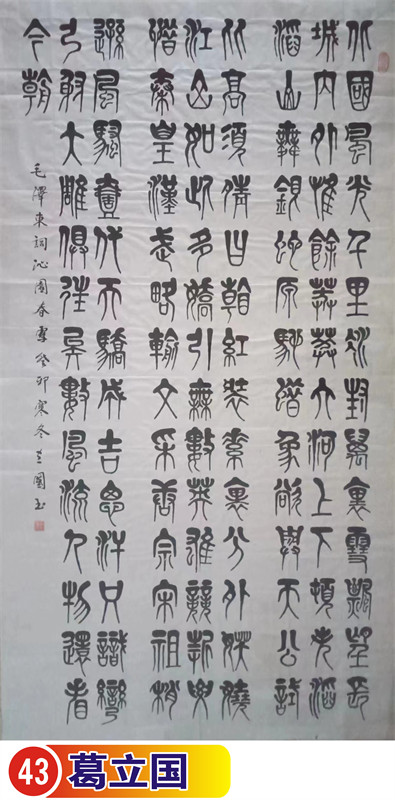 北國風光千里冰封萬裏雪飄望長
城內外惟餘莽莽大河上下頓失滔
滔山舞銀蛇原馳蜡象欲與天公試
比高須晴日看紅裝素裹分外妖嬈
江山如此多嬌引無數英雄競折腰
惜秦皇漢武略輸文采唐宗宋祖稍
遜風騷壹代天驕成吉思汗只識彎
弓射大雕俱往矣數風流人物還看
今朝
毛澤東詞沁園春雪癸卯寒冬立國書
43 葛立国